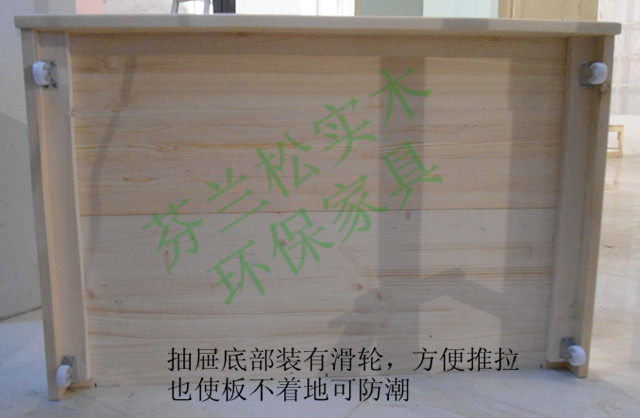 芬兰松实木
环保家具
抽屉底部装有滑轮，方便推拉
也使板不着地可防潮